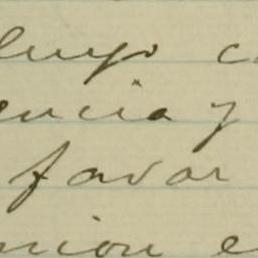 luyo c
encia y
favor
nion e